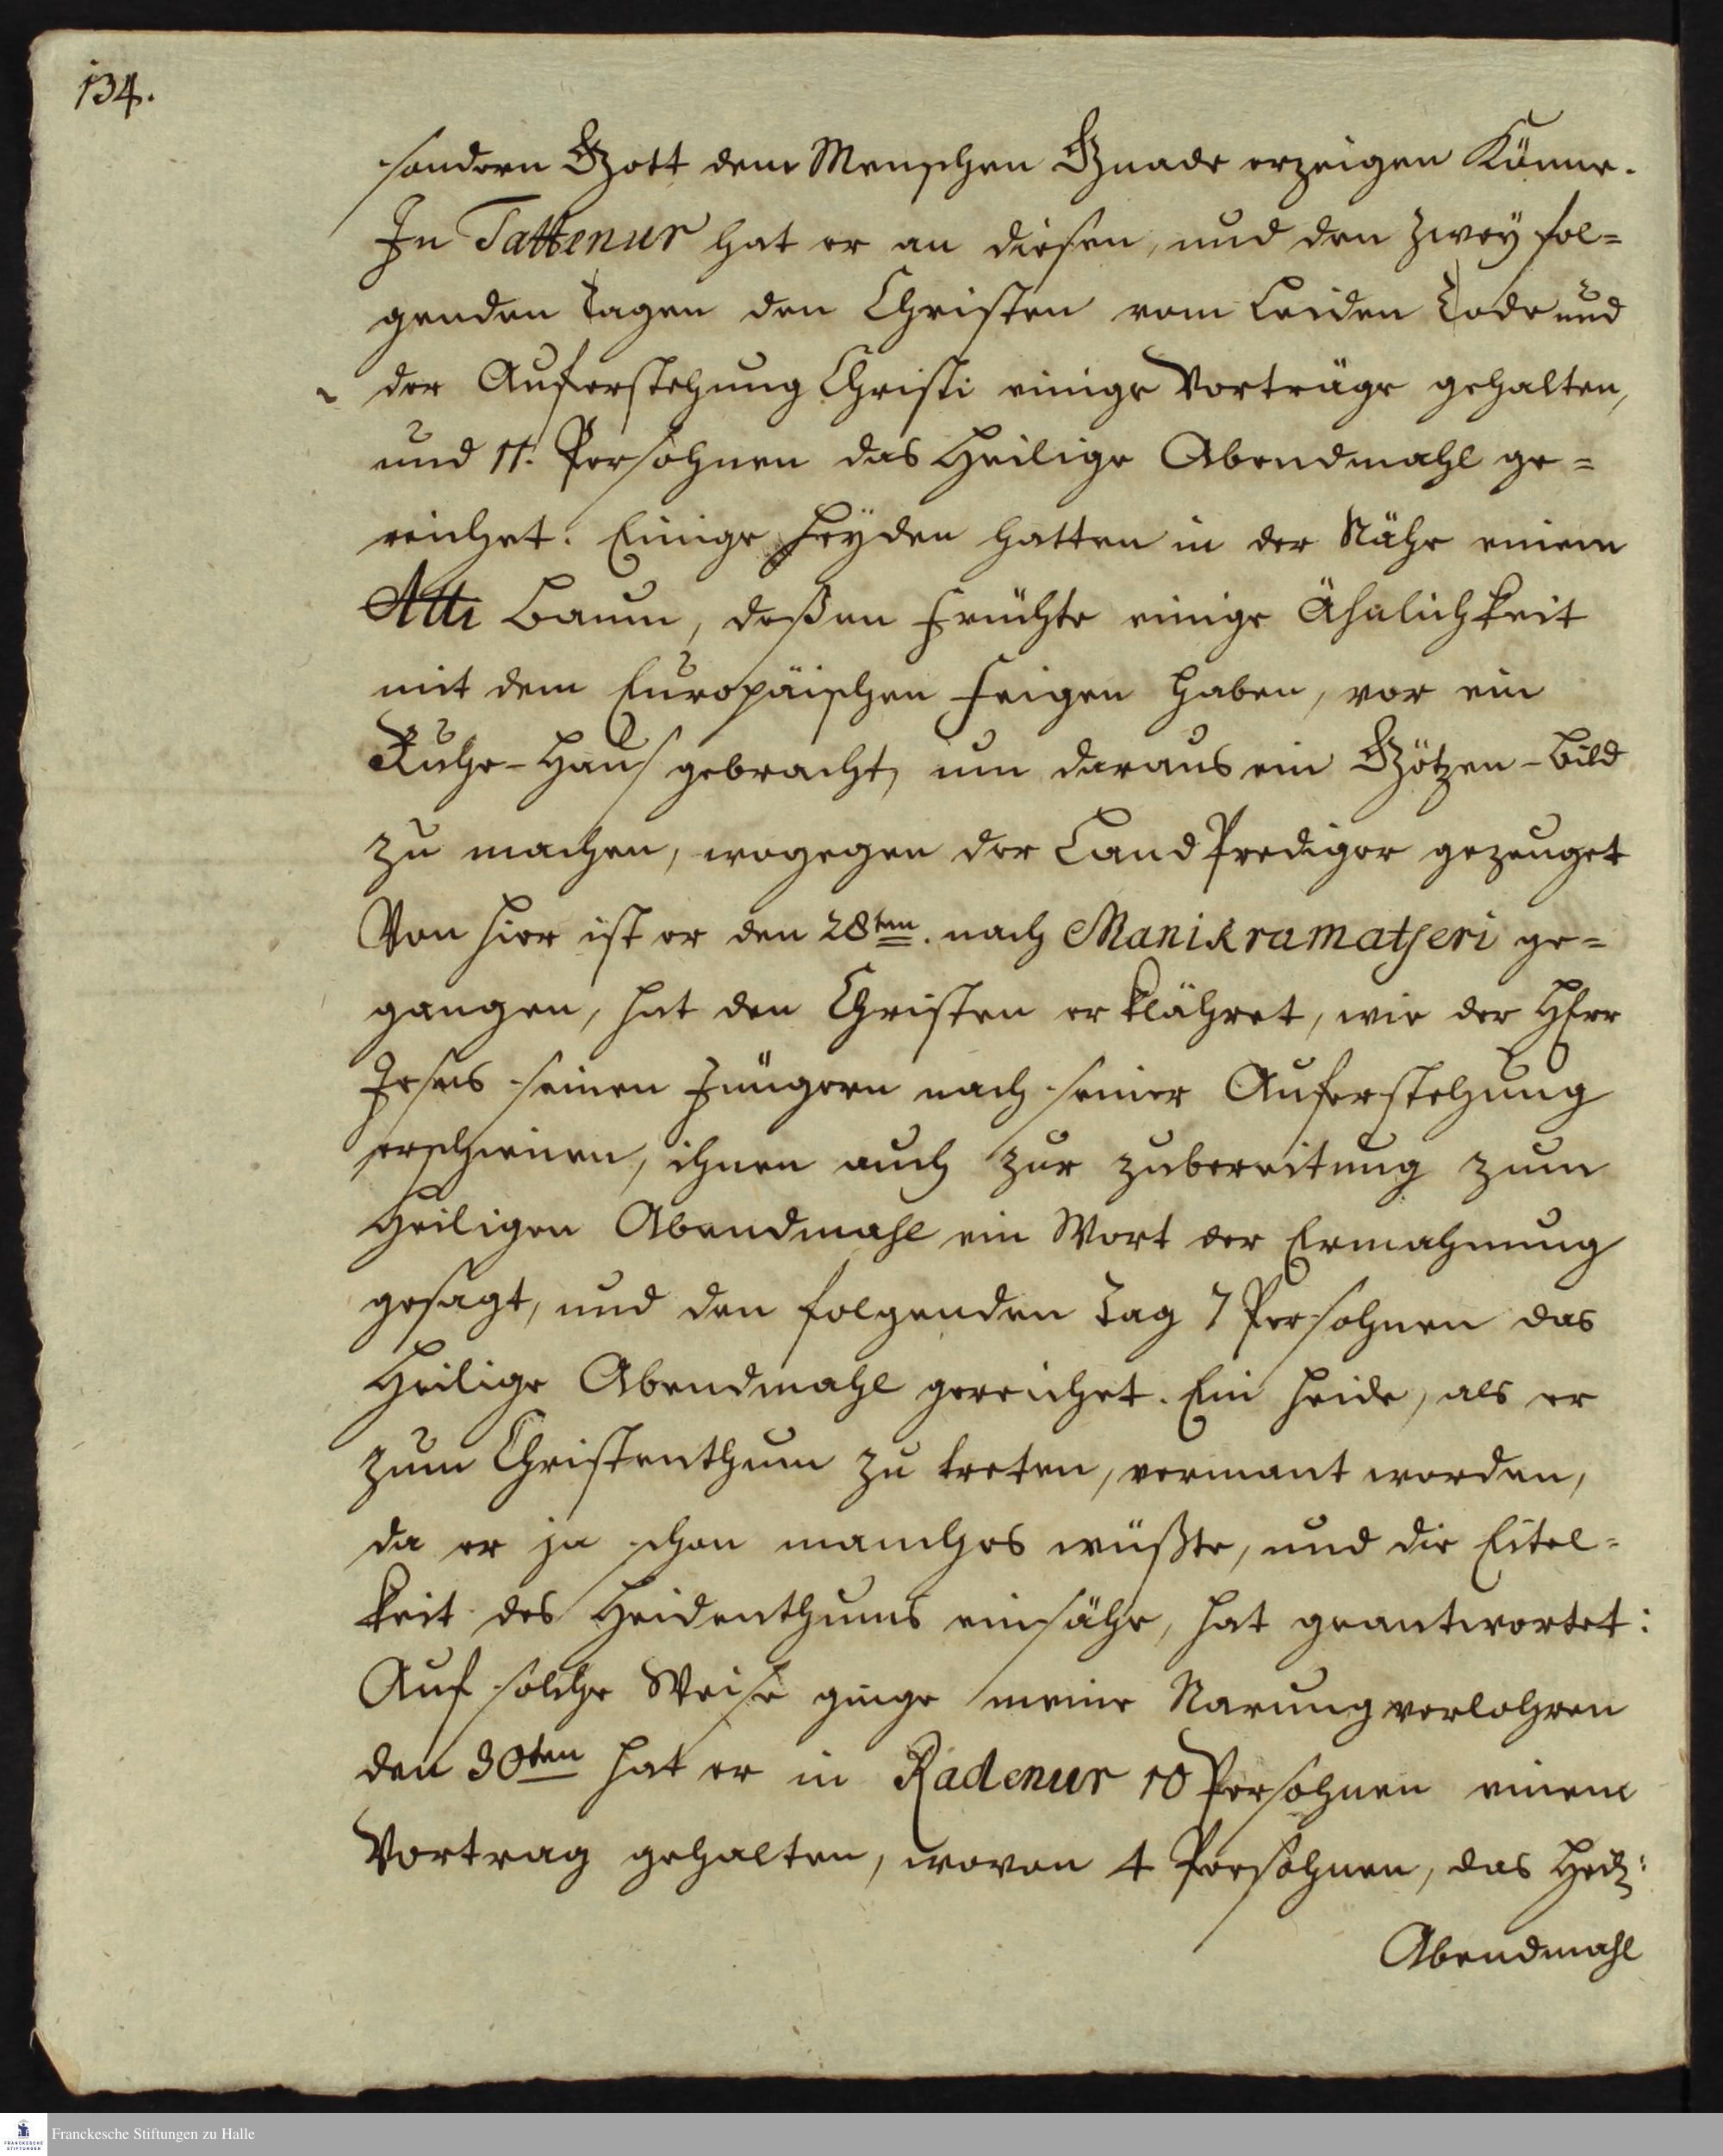 134.
sondern Gott dem Menschen Gnade erzeigen Könne.
In Tattenur hat er an diesen, und den zwey fol=
genden Tagen den Christen vom Leiden Tode und
der Auferstehung Christi einige Vorträge gehalten,
und 11. Persohnen das Heilige Abendmahl ge=
reichet. Einige Heyden hatten in der Nähe einem
Atti Baum, deßen Früchte einige Ähnlichkeit
mit dem Europäischen Feigen haben, vor ein
Ruhe-Haus gebracht, um daraus ein Götzen-Bild
zu machen, wogegen der Land Prediger gezeuget
Von hier ist er den 28ten. nach Manikramatseri ge=
gangen, hat den Christen erklähret, wie der HErr
Jesus seinen Jüngern nach seiner Auferstehung
erschienen, ihnen auch zur zubereitung zum
Heiligen Abendmahl ein Wort der Ermahnung
gesagt, und den folgenden Tag 7 Persohnen das
Heilige Abendmahl gereichet. Ein Heide, als er
zum Christenthum zu treten, vermant worden,
da er ja schon manches wüßte, und die Eitel=
keit des Heidenthums einsähe, hat geantwortet:
Auf solche Weise ginge meine Narung verlohren
den 30ten hat er in Radenur 10 Persohnen einem
Vortrag gehalten, wovon 4 Persohnen, das Heil:
Abendmahl
Franckesche Stiftungen zu Halle